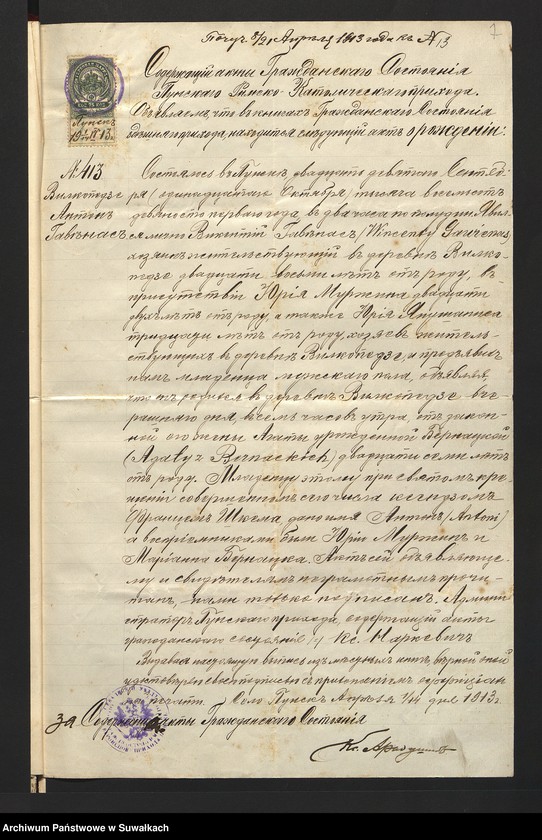 Получ. 8/21 Апреля 1913 года к № 13
7
Содержащій акты Гражданскаго Состоянія
Пунскаго Римско-Католическаго прихода.
Объявляемъ, что въ книгахъ Гражданскаго Состоянія
прихода, находится слѣдующій актъ о рожденіи:
Пунскъ
1913
№ 413
Вилкопедзе
Антонъ
Гавѣнасъ
Состоялось въ Пунскѣ, двадцать девятаго Сентяб-
ря (одинадцатаго Октября) тысяча восемьсотъ
девяносто перваго года, въ два часа по полудни. Явил-
ся лично Викентій Гавѣнасъ (Wincenty Gawienas)
хозяинъ жительствующій въ деревнѣ Вилко-
педзе двадцати восьми лѣтъ отъ роду, въ
присутствіи Юрія Муржина двадцати
двухъ лѣтъ отъ роду, а также Юрія
тридцати лѣтъ отъ роду, хозяевъ житель-
ствующихъ въ деревнѣ Вилкопедзе, и предъявилъ
намъ младенца мужскаго пола, объявляя,
что онъ родился въ деревнѣ Вилкопедзе вче-
рашняго дня, въ семь часовъ утра, отъ закон-
ной его жены Агаты урожденной Бернацкой
двадцати семи лѣтъ
отъ роду. Младенцу этому при святомъ кре-
щеніи совершенномъ сего числа ксендзомъ
Францемъ Шкема, дано имя Антонъ (Antoni)
а воспріемниками были Юрій Муржинъ и
Маріанна Бернацка. Актъ сей объявляюще-
му и свидѣтелямъ неграмотнымъ прочи-
танъ, нами только подписанъ. Админи-
страторъ Пунскаго прихода, содержащій акты
гражданскаго состоянія (-) Кс. Маркевичъ
Выдавая настоящую выпись
удостовѣряемъ своею подписью съ приложеніемъ
печати. Село Пунскъ Апрѣля 1/14 дня 1913 г.
За Содержащій акты Гражданскаго Состоянія
Кс.
Archiwum Państwowe w Suwałkach